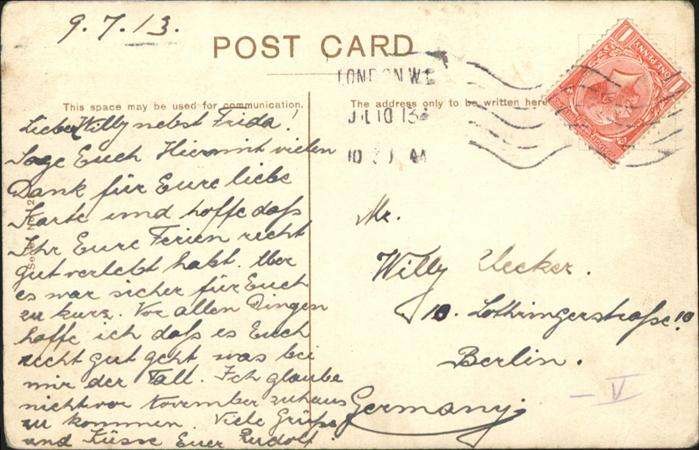 9.7.13.
POST CARD
This space may be used for communication.
The address only to be written here
LONDON W
JL 10 13
10 30 AM
ONE PENNY
Lieber Willy nebst Frida!
Sage Euch Hiermit vielen
Dank für Eure liebe
Karte und hoffe daß
Ihr Eure Ferien recht
gut verlebt habt. Aber
es war sicher für Euch
zu kurz. Vor allen Dingen
hoffe ich daß es Euch
recht gut geht was bei
mir der Fall. Ich glaube
nicht vor November zuhaus
zu kommen. Viele Grüße
und Küsse Euer Rudolf!
Mr.
Willy Uecker.
10. Lothringerstraße 10
Berlin.
Germany.
– V